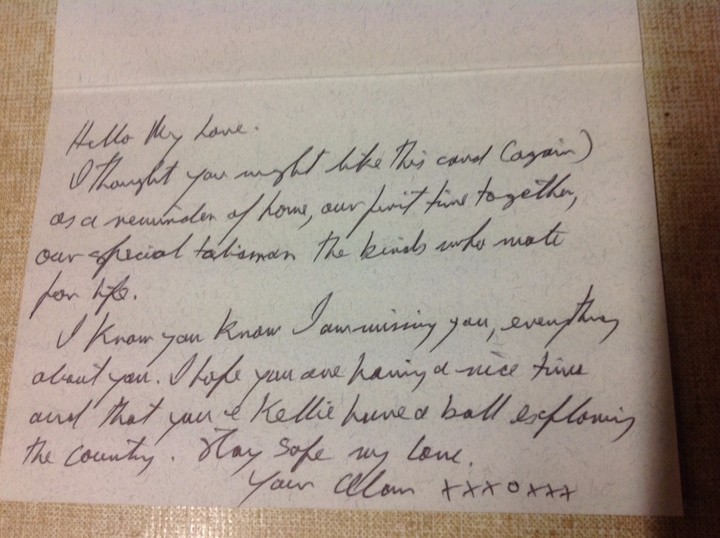 Hello My Love.
I thought you might like this card (again)
as a reminder of home, our first time together,
our special talisman the birds who mate
for life.
I know you know I am missing you, everything
about you. I hope you are having a nice time
and that you & Kellie have a ball exploring
the country. Stay safe my love.
Your Alan xxxoxxx